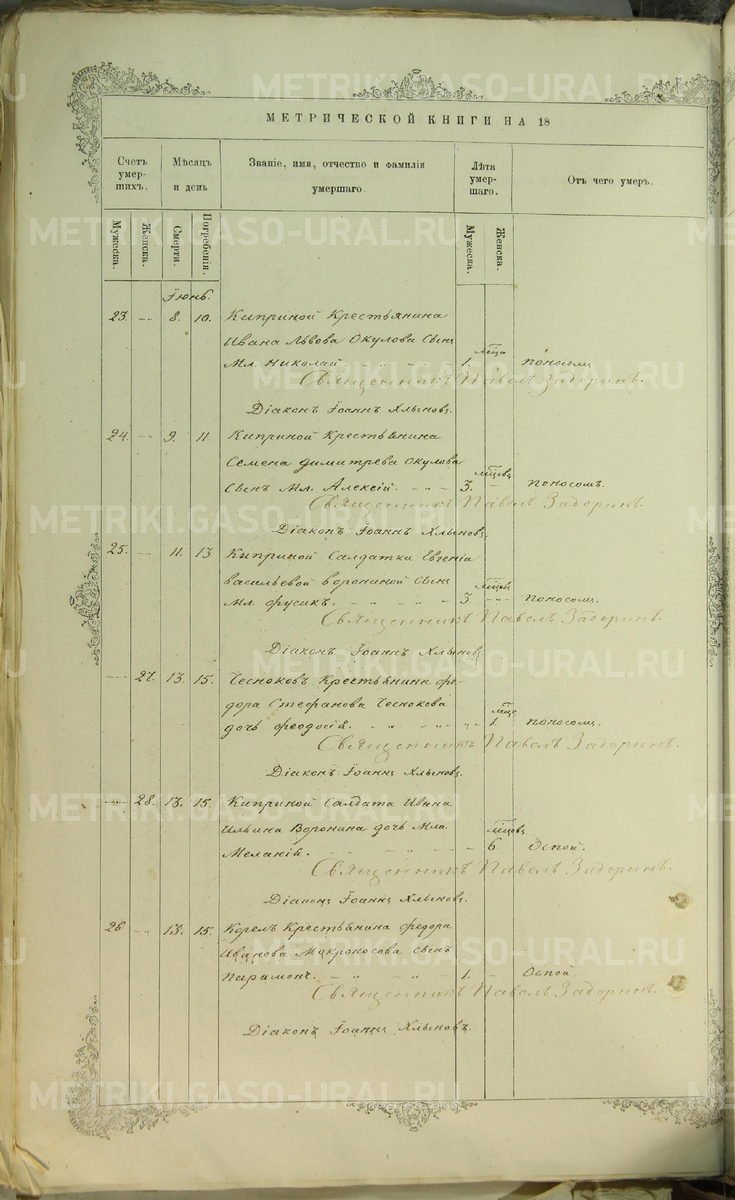 МЕТРИЧЕСКОЙ КНИГИ НА 18
Счетъ умер-шихъ. Мѣсяцъ и день Званіе, имя, отчество и фамилія умершаго. Лѣта умер-шаго. Отъ чего умеръ.
Мужеска. Женска. Смерти. Погребенія. Мужеска. Женска.
Їюнь.
23. 8. 10. Киприной Крестьянина
Ивана Львова Окулова Сынъ
мц͠а
Мл. Николай 1. поносомъ
Священникъ Павелъ Задоринъ.
Діаконъ Їоаннъ Хлыновъ.
24. 9. 11 Киприной Крестьянина
Семена Димитрева Окулова
мц͠овъ
Сынъ Мл. Алексій. 3. поносомъ.
Священникъ Павелъ Задоринъ.
Діаконъ Їоаннъ Хлыновъ.
25. 11. 13 Киприной Салдатки Евгеніи
Васильевой Ворониной Сынъ
Мл. 3 поносомъ.
Священникъ Павелъ Задоринъ.
Діаконъ Їоаннъ Хлыновъ
27. 13. 15. Чесноковъ Крестьянина Фе-
дора Стефанова Чеснокова
дочь Феодосій. 1. поносомъ.
Священникъ Павелъ Задоринъ.
Діаконъ Їоаннъ Хлыновъ.
28. 13. 15. Киприной Салдата Ивана
Ильина Воронина дочь Мла.
мц͠овъ
Меланій. 6 Оспой.
Священникъ Павелъ Задоринъ.
Діаконъ Їоаннъ Хлыновъ.
26 13. 15. Корелъ Крестьянина Федора
Иванова Мокроносова Сынъ
Парамонъ. 1. Оспой
Священникъ Павелъ Задоринъ.
Діаконъ Їоаннъ Хлыновъ.
METRIKI.GASO-URAL.RU